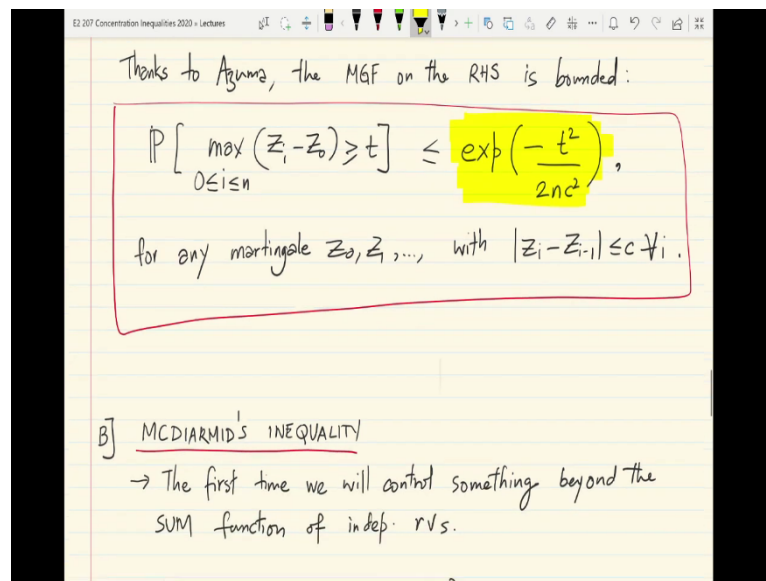 E2 207 Concentration Inequalities 2020 » Lectures
Thanks to Azuma, the MGF on the RHS is bounded:
ℙ[ max (Z_i - Z_0) ≥ t ] ≤ exp(- t²/2nc²),
0≤i≤n
for any martingale Z_0, Z_1, ..., with |Z_i - Z_{i-1}| ≤ c ∀i.
B] MCDIARMID'S INEQUALITY
→ The first time we will control something beyond the
SUM function of indep. rvs.